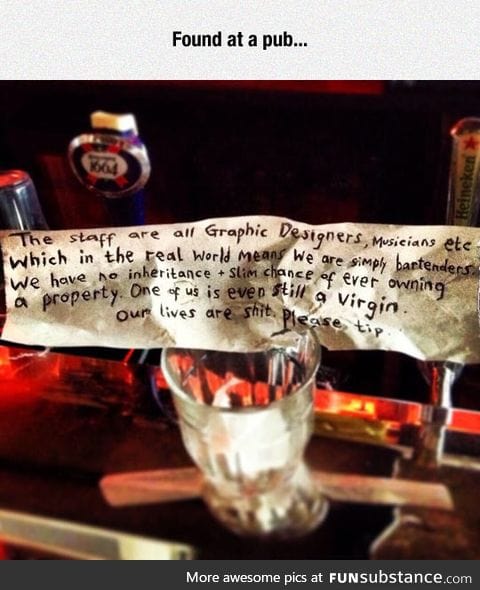 Found at a pub...
1664
Heineken
The staff are all Graphic Designers, Musicians etc
Which in the real world means we are simply bartenders.
We have no inheritance + slim chance of ever owning
a property. One of us is even still a Virgin.
Our lives are shit. Please tip.
More awesome pics at FUNsubstance.com